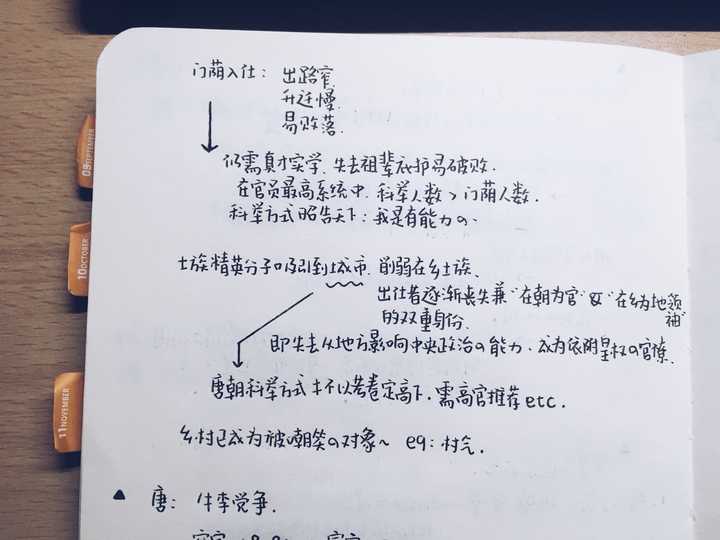 门荫入仕: 出路窄.
升迁慢.
易败落.
仍需真才实学. 失去祖辈庇护易破败.
在官员最高系统中. 科举人数 > 门荫人数.
科举方式昭告天下: 我是有能力の.
士族精英分子吸引到城市. 削弱在乡士族.
出仕者逐渐丧失兼"在朝为官"&"在乡为地领袖"
的双重身份.
即失去从地方影响中央政治の能力. 成为依附皇权の官僚.
唐朝科举方式 并不以考卷定高下. 需高官推荐 etc.
乡村已成为被嘲笑の对象~ eg: 村气.
▲ 唐: 牛李党争.
09 SEPTEMBER
10 OCTOBER
11 NOVEMBER